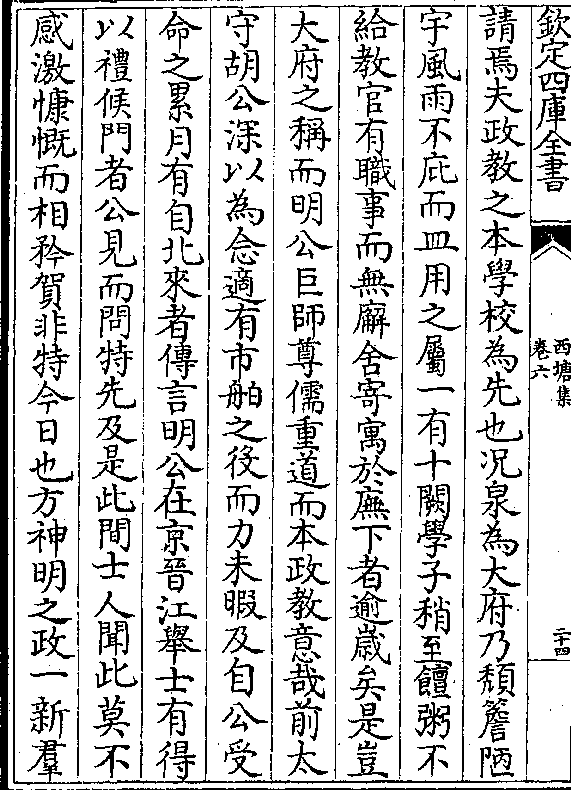 欽定四庫全書
西塘集
卷六
二十四
請焉夫政教之本學校為先也况泉為大府乃頹簷陋
宇風雨不庇而皿用之屬一有十闕學子稍至饘粥不
給教官有職事而無廨舍寄寓於廡下者逾歲矣是豈
大府之稱而明公巨師尊儒重道而本政教意哉前太
守胡公深以為念適有市舶之役而力未暇及自公受
命之累月有自北來者傳言明公在京晉江舉士有得
以禮候門者公見而問特先及是此間士人聞此莫不
感激慷慨而相矜賀非特今日也方神明之政一新羣